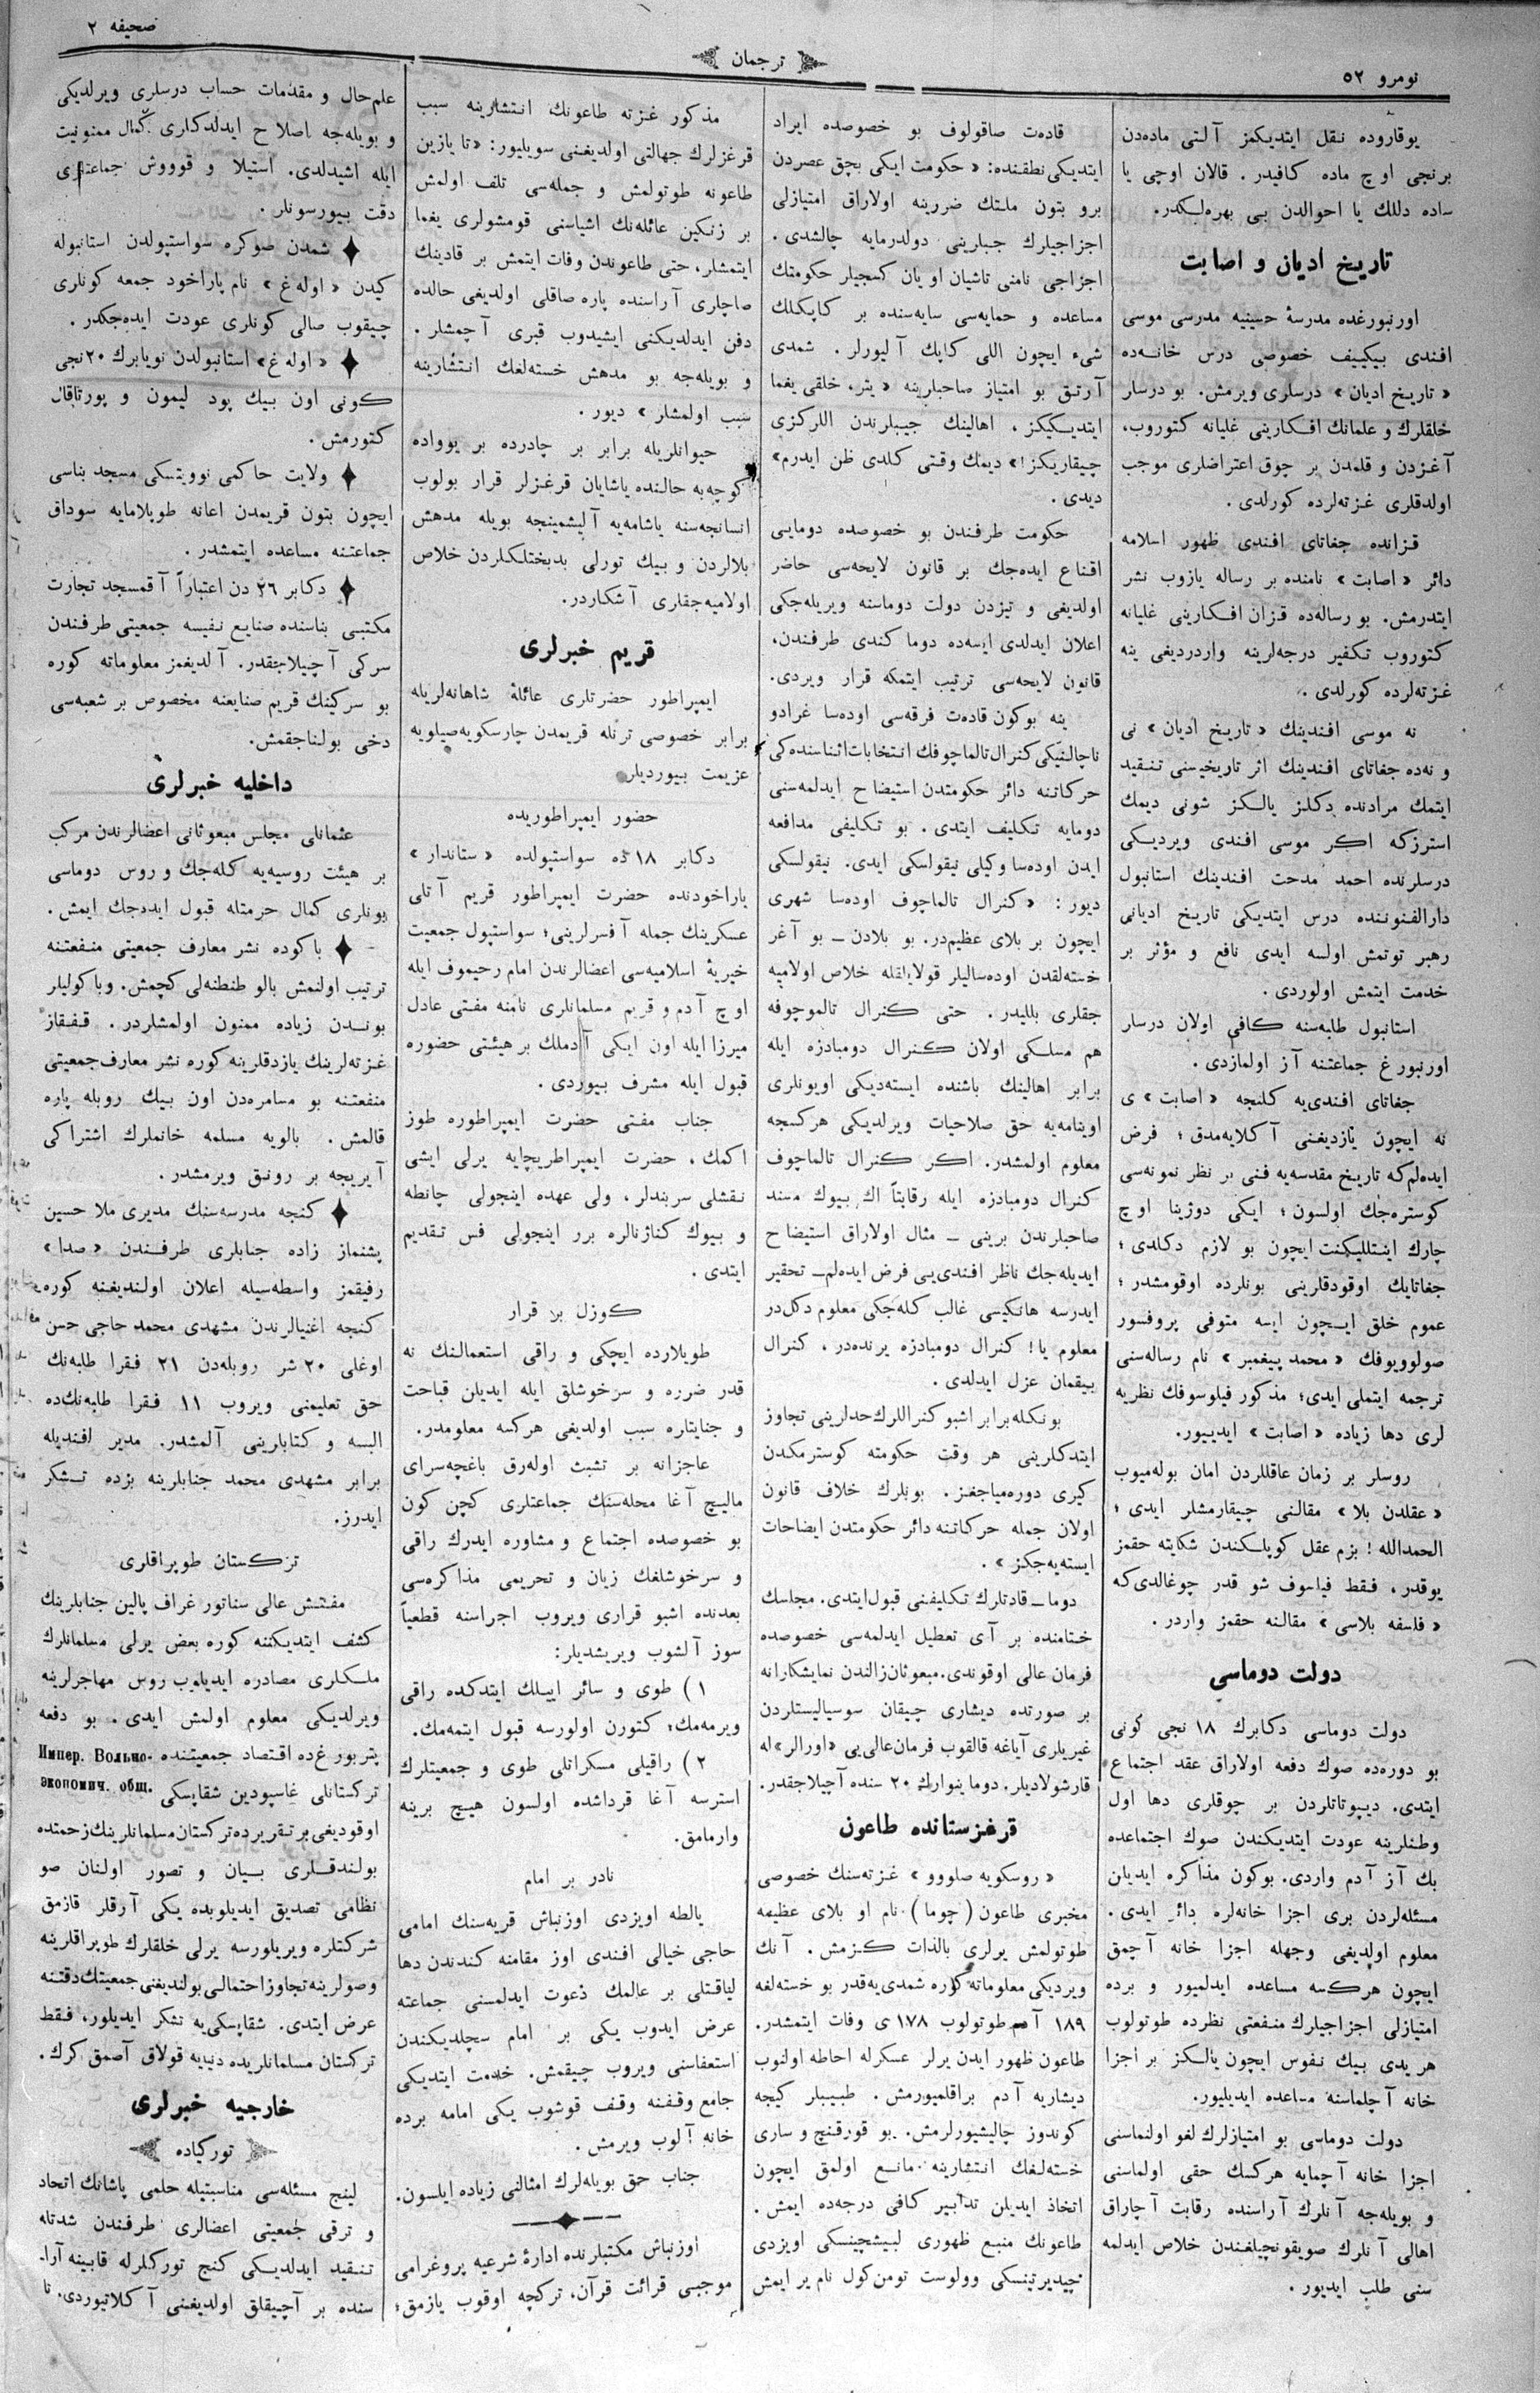 نومرو ٥٢
ترجمان
صحیفه ٢
یوقاروده نقل ایتدیکمز آلتی ماده‌دن
برنجی اوچ ماده کافیدر. قالان اوچی یا
ساده دللك یا احوالدن بی بهره‌لكدر.
تاریخ ادیان و اصابت
اورنبورغده مدرسهٔ حسینیه مدرسی موسی
افندی بیکییف خصوصی درس خانه‌ده
« تاریخ ادیان » درسلری ویرمش. بو درسلر
خلقلرك و علمانك افكارینی غلیانه كتوروب،
آغزدن و قلمدن بر چوق اعتراضلری موجب
اولدقلری غزته‌لرده كورلدی.
قزانده جغاتای افندی ظهور اسلامه
دائر « اصابت » نامنده بر رساله یازوب نشر
ایتدرمش. بو رساله‌ده قزان افكارینی غلیانه
كتوروب تكفیر درجه‌لرینه واردردیغی ینه
غزته‌لرده كورلدی.
نه موسی افندینك « تاریخ ادیان » نی
و نه‌ده جغاتای افندینك اثر تاریخیسنی تنقید
ایتمك مرادنده دكلز یالكز شونی دیمك
استرزكه اكر موسی افندی ویردیكی
درسلرنده احمد مدحت افندینك استانبول
دارالفنوننده درس ایتدیكی تاریخ ادیانی
رهبر توتمش اولسه ایدی نافع و مؤثر بر
خدمت ایتمش اولوردی.
استانبول طلبه‌سنه كافی اولان درسلر
اورنبورغ جماعتنه آز اولمازدی.
جغاتای افندی‌یه كلنجه « اصابت » ی
نه ایچون یازدیغنی آكلایه‌مدق؛ فرض
ایده‌لم‌كه تاریخ مقدسه‌یه فنی بر نظر نمونه‌سی
كوستره‌جك اولسون؛ ایكی دوزینا اوچ
چارك اینتللیكنت ایچون بو لازم دكلدی؛
جغاتایك اوقودقلرینی بونلرده اوقومشدر؛
عموم خلق ایچون ایسه متوفی پروفسور
صولوویوفك « محمد پیغمبر » نام رساله‌سنی
ترجمه ایتملی ایدی؛ مذكور فیلوسوفك نظریه
لری دها زیاده « اصابت » ایدییور.
روسلر بر زمان عاقللردن امان بوله‌میوب
« عقلدن بلا » مقالنی چیقارمشلر ایدی؛
الحمدالله! بزم عقل كوپلكندن شكایته حقمز
یوقدر، فقط فیلسوف شو قدر چوغالدی‌كه
« فلسفه بلاسی » مقالنه حقمز واردر.
دولت دوماسی
دولت دوماسی دكابرك ١٨ نجی كونی
بو دوره‌ده صوك دفعه اولاراق عقد اجتماع
ایتدی. دیپوتاتلردن بر چوقلری دها اول
وطنلرینه عودت ایتدیكندن صوك اجتماعده
بك آز آدم واردی. بوكون مذاكره ایدیلن
مسئله‌لردن بری اجزا خانه‌لره دائر ایدی.
معلوم اولدیغی وجهله اجزا خانه آچمق
ایچون هركسه مساعده ایدلمیور و برده
امتیازلی اجزاجیلرك منفعتی نظرده طوتولوب
هر یدی بیك نفوس ایچون یالكز بر اجزا
خانه آچلماسنه مساعده ایدیلیور.
دولت دوماسی بو امتیازلرك لغو اولنماسنی
اجزا خانه آچمایه هركسك حقی اولماسنی
و بویله‌جه آنلرك آراسنده رقابت آچاراق
اهالی آنلرك صویغونچیلغندن خلاص ایدلمه
سنی طلب ایدیور.
قاده‌ت صاقولوف بو خصوصده ایراد
ایتدیكی نطقنده: « حكومت ایكی بچق عصردن
برو بتون ملتك ضررینه اولاراق امتیازلی
اجزاجیلرك جیبلرینی دولدرمایه چالشدی.
اجزاجی نامنی تاشیان اویان كسجیلر حكومتك
مساعده و حمایه‌سی سایه‌سنده بر كاپكلك
شیء ایچون اللی كاپك آلیورلر. شمدی
آرتق بو امتیاز صاحبلرینه « یتر، خلقی یغما
ایتدیكیكز، اهالینك جیبلرندن اللركزی
چیقاریكز!» دیمك وقتی كلدی ظن ایدرم»
دیدی.
حكومت طرفندن بو خصوصده دومایی
اقناع ایده‌جك بر قانون لایحه‌سی حاضر
اولدیغی و تیزدن دولت دوماسنه ویریله‌جكی
اعلان ایدلدی ایسه‌ده دوما كندی طرفندن،
قانون لایحه‌سی ترتیب ایتمكه قرار ویردی.
ینه بوكون قاده‌ت فرقه‌سی اوده‌سا غرادو
ناچالنیكی كنرال تالماچوفك انتخابات اثناسنده‌كی
حركاتنه دائر حكومتدن استیضاح ایدلمه‌سنی
دومایه تكلیف ایتدی. بو تكلیفی مدافعه
ایدن اوده‌سا وكیلی نیقولسكی ایدی. نیقولسكی
دیور: « كنرال تالماچوف اوده‌سا شهری
ایچون بر بلای عظیم‌در. بو بلادن ــ بو آغر
خسته‌لقدن اوده‌سالیلر قولایلقله خلاص اولامیه
جقلری بللیدر. حتی كنرال تالموچوفه
هم مسلكی اولان كنرال دومبادزه ایله
برابر اهالینك باشنده ایسته‌دیكی اویونلری
اوینامه‌یه حق صلاحیات ویرلدیكی هركسجه
معلوم اولمشدر. اكر كنرال تالماچوف
كنرال دومبادزه ایله رقابتاً اك بیوك مسند
صاحبلرندن برینی ــ مثال اولاراق استیضاح
ایدیله‌جك ناظر افندی‌یی فرض ایده‌لم ــ تحقیر
ایدرسه هانكیسی غالب كله‌جكی معلوم دكل‌در
معلوم یا! كنرال دومبادزه یرنده‌در، كنرال
بیقمان عزل ایدلدی.
بونكله برابر اشبو كنراللرك حدلرینی تجاوز
ایتدكلرینی هر وقت حكومته كوسترمكدن
كیری دوره‌میاجغز. بونلرك خلاف قانون
اولان جمله حركاتنه دائر حكومتدن ایضاحات
ایسته‌یه‌جكز ».
دوما ــ قادتلرك تكلیفنی قبول ایتدی. مجلسك
ختامنده بر آی تعطیل ایدلمه‌سی خصوصده
فرمان عالی اوقوندی. مبعوثان زالندن نمایشكارانه
بر صورتده دیشاری چیقان سوسیالیستلردن
غیریلری آیاغه قالقوب فرمان عالی‌یی « اورا » لر له
قارشولادیلر. دوما ینوارك ٢٠ سنده آچیلاجقدر.
قرغزستانده طاعون
« روسكویه صلووو » غزته‌سنك خصوصی
مخبری طاعون (چوما) نام او بلای عظیمه
طوتولمش یرلری بالذات كزمش. آنك
ویردیكی معلوماته كوره شمدی‌یه‌قدر بو خسته‌لغه
١٨٩ آدم طوتولوب ١٧٨ ی وفات ایتمشدر.
طاعون ظهور ایدن یرلر عسكرله احاطه اولنوب
دیشاریه آدم براقلمیورمش. طبیبلر كیجه
كوندوز چالیشیورلرمش. بو قورقنچ و ساری
خسته‌لغك انتشارینه مانع اولمق ایچون
اتخاذ ایدیلن تدابیر كافی درجه‌ده ایمش.
طاعونك منبع ظهوری لبیشچینسكی اویزدی
وولوست تومن‌كول نام یر ایمش
مذكور غزته طاعونك انتشارینه سبب
قرغزلرك جهالتی اولدیغنی سویلیور: « تا یازین
طاعونه طوتولمش و جمله‌سی تلف اولمش
بر زنكین عائله‌نك اشیاسنی قومشولری یغما
ایتمشلر، حتی طاعوندن وفات ایتمش بر قادینك
صاچلری آراسنده پاره صاقلی اولدیغی حالده
دفن ایدلدیكنی ایشیدوب قبری آچمشلر.
و بویله‌جه بو مدهش خسته‌لغك انتشارینه
سبب اولمشلر » دیور.
حیوانلریله برابر بر چادرده بر یوواده
كوچه‌به حالنده یاشایان قرغزلر قرار بولوب
انسانجه‌سنه یاشامه‌یه آلیشمینجه بویله مدهش
بلالردن و بیك تورلی بدبختلكلردن خلاص
اولامیه‌جقلری آشكاردر.
قریم خبرلری
ایمپراطور حضرتلری عائلهٔ شاهانه‌لریله
برابر خصوصی ترنله قریمدن چارسكویه‌صیلویه
عزیمت بیوردیلر.
حضور ایمپراطوریده
دكابر ١٨ ده سواستپولده « ستاندار »
پاراخودنده حضرت ایمپراطور قریم آتلی
عسكرینك جمله آفسرلرینی؛ سواستپول جمعیت
خیریهٔ اسلامیه‌سی اعضالرندن امام رحیموف ایله
اوچ آدم و قریم مسلمانلری نامنه مفتی عادل
میرزا ایله اون ایكی آدملك بر هیئتی حضوره
قبول ایله مشرف بیوردی.
جناب مفتی حضرت ایمپراطوره طوز
اكمك، حضرت ایمپراطریچایه یرلی ایشی
نقشلی سربندلر، ولی عهده اینجولی چانطه
و بیوك كنازنالره برر اینجولی فس تقدیم
ایتدی.
كوزل بر قرار
طویلارده ایچكی و راقی استعمالنك نه
قدر ضرره و سرخوشلق ایله ایدیلن قباحت
و جنایتلره سبب اولدیغی هركسه معلومدر.
عاجزانه بر تشبث اوله‌رق باغچه‌سرای
مالیچ آغا محله‌سنك جماعتلری كچن كون
بو خصوصده اجتماع و مشاوره ایدرك راقی
و سرخوشلغك زیان و تحریمی مذاكره‌سی
بعدنده اشبو قراری ویروب اجراسنه قطعیاً
سوز آلشوب ویریشدیلر:
١) طوی و سائر اییلك ایتدكده راقی
ویرمه‌مك؛ كتورن اولورسه قبول ایتمه‌مك.
٢) راقیلی مسكراتلی طوی و جمعیتلرك
استرسه آغا قرداشده اولسون هیچ برینه
وارمامق.
نادر بر امام
یالطه اویزدی اوزنباش قریه‌سنك امامی
حاجی خیالی افندی اوز مقامنه كندندن دها
لیاقتلی بر عالمك دعوت ایدلمسنی جماعته
عرض ایدوب یكی بر امام سچلدیكندن
استعفاسنی ویروب چیقمش. خدمت ایتدیكی
جامع وقفنه وقف قوشوب یكی امامه برده
خانه آلوب ویرمش.
جناب حق بویله‌لرك امثالنی زیاده ایلسون.
اوزنباش مكتبلرنده ادارهٔ شرعیه پروغرامی
موجبی قرائت قرآن، تركچه اوقوب یازمق،
علم‌حال و مقدمات حساب درسلری ویرلدیكی
و بویله‌جه اصلاح ایدلدكلری كمال ممنونیت
ایله اشیدلدی. استیلا و قوووش جماعتلری
دقت بیورسونلر.
شمدن صوكره سواستپولدن استانبوله
كیدن « اوله‌غ » نام پاراخود جمعه كونلری
چیقوب صالی كونلری عودت ایده‌جكدر.
« اوله‌غ » استانبولدن نویابرك ٢٠ نجی
كونی اون بیك پود لیمون و پورتاقال
كتورمش.
ولایت حاكمی نوویتسكی مسجد بناسی
ایچون بتون قریمدن اعانه طوپلامایه سوداق
جماعتنه مساعده ایتمشدر.
دكابر ٢٦ دن اعتباراً آقمسجد تجارت
مكتبی بناسنده صنایع نفیسه جمعیتی طرفندن
سركی آچیلاجقدر. آلدیغمز معلوماته كوره
بو سركینك قریم صنایعنه مخصوص بر شعبه‌سی
دخی بولناجقمش.
داخلیه خبرلری
عثمانلی مجلس مبعوثانی اعضالرندن مركب
بر هیئت روسیه‌یه كله‌جك و روس دوماسی
بونلری كمال حرمتله قبول ایده‌جك ایمش.
باكوده نشر معارف جمعیتی منفعتنه
ترتیب اولنمش بالو طنطنه‌لی كچمش. و باكولیلر
بوندن زیاده ممنون اولمشلردر. قفقاز
غزته‌لرینك یازدقلرینه كوره نشر معارف جمعیتی
منفعتنه بو مسامره‌دن اون بیك روبله پاره
قالمش. بالویه مسلمه خانملرك اشتراكی
آیریجه بر رونق ویرمشدر.
كنجه مدرسه‌سنك مدیری ملا حسین
پشنماز زاده جنابلری طرفندن « صدا »
رفیقمز واسطه‌سیله اعلان اولندیغنه كوره
كنجه اغنیالرندن مشهدی محمد حاجی حسن
اوغلی ٢٠ شر روبله‌دن ٢١ فقرا طلبه‌نك
حق تعلیمنی ویروب ١١ فقرا طلبه‌نك‌ده
البسه و كتابلرینی آلمشدر. مدیر افندیله
برابر مشهدی محمد جنابلرینه بزده تشكر
ایدرز.
تركستان طوپراقلری
مفتش عالی سناتور غراف پالین جنابلرینك
كشف ایتدیكننه كوره بعض یرلی مسلمانلرك
ملكلری مصادره ایدیلوب روس مهاجرلرینه
ویرلدیكی معلوم اولمش ایدی. بو دفعه
پتربورغده اقتصاد جمعیتنده Импер. Вольно-
экономич. общ. تركستانلی غاسپودین شقاپسكی
اوقودیغی بر تقریرده تركستان مسلمانلرینك زحمتده
بولندقلری بیان و تصور اولنان صو
نظامی تصدیق ایدیلوبده یكی آرقلر قازمق
شركتلره ویریلورسه یرلی خلقلرك طوپراقلرینه
وصولرینه تجاوز احتمالی بولندیغنی جمعیتك دقتنه
عرض ایتدی. شقاپسكی‌یه تشكر ایدیلور، فقط
تركستان مسلمانلریده دنیایه قولاق آصمق كرك.
خارجیه خبرلری
توركیاده
لینچ مسئله‌سی مناسبتیله حلمی پاشانك اتحاد
و ترقی جمعیتی اعضالری طرفندن شدتله
تنقید ایدلدیكی كنج توركلرله قابینه آرا‌
سنده بر آچیقلق اولدیغنی آكلاتیوردی. تا